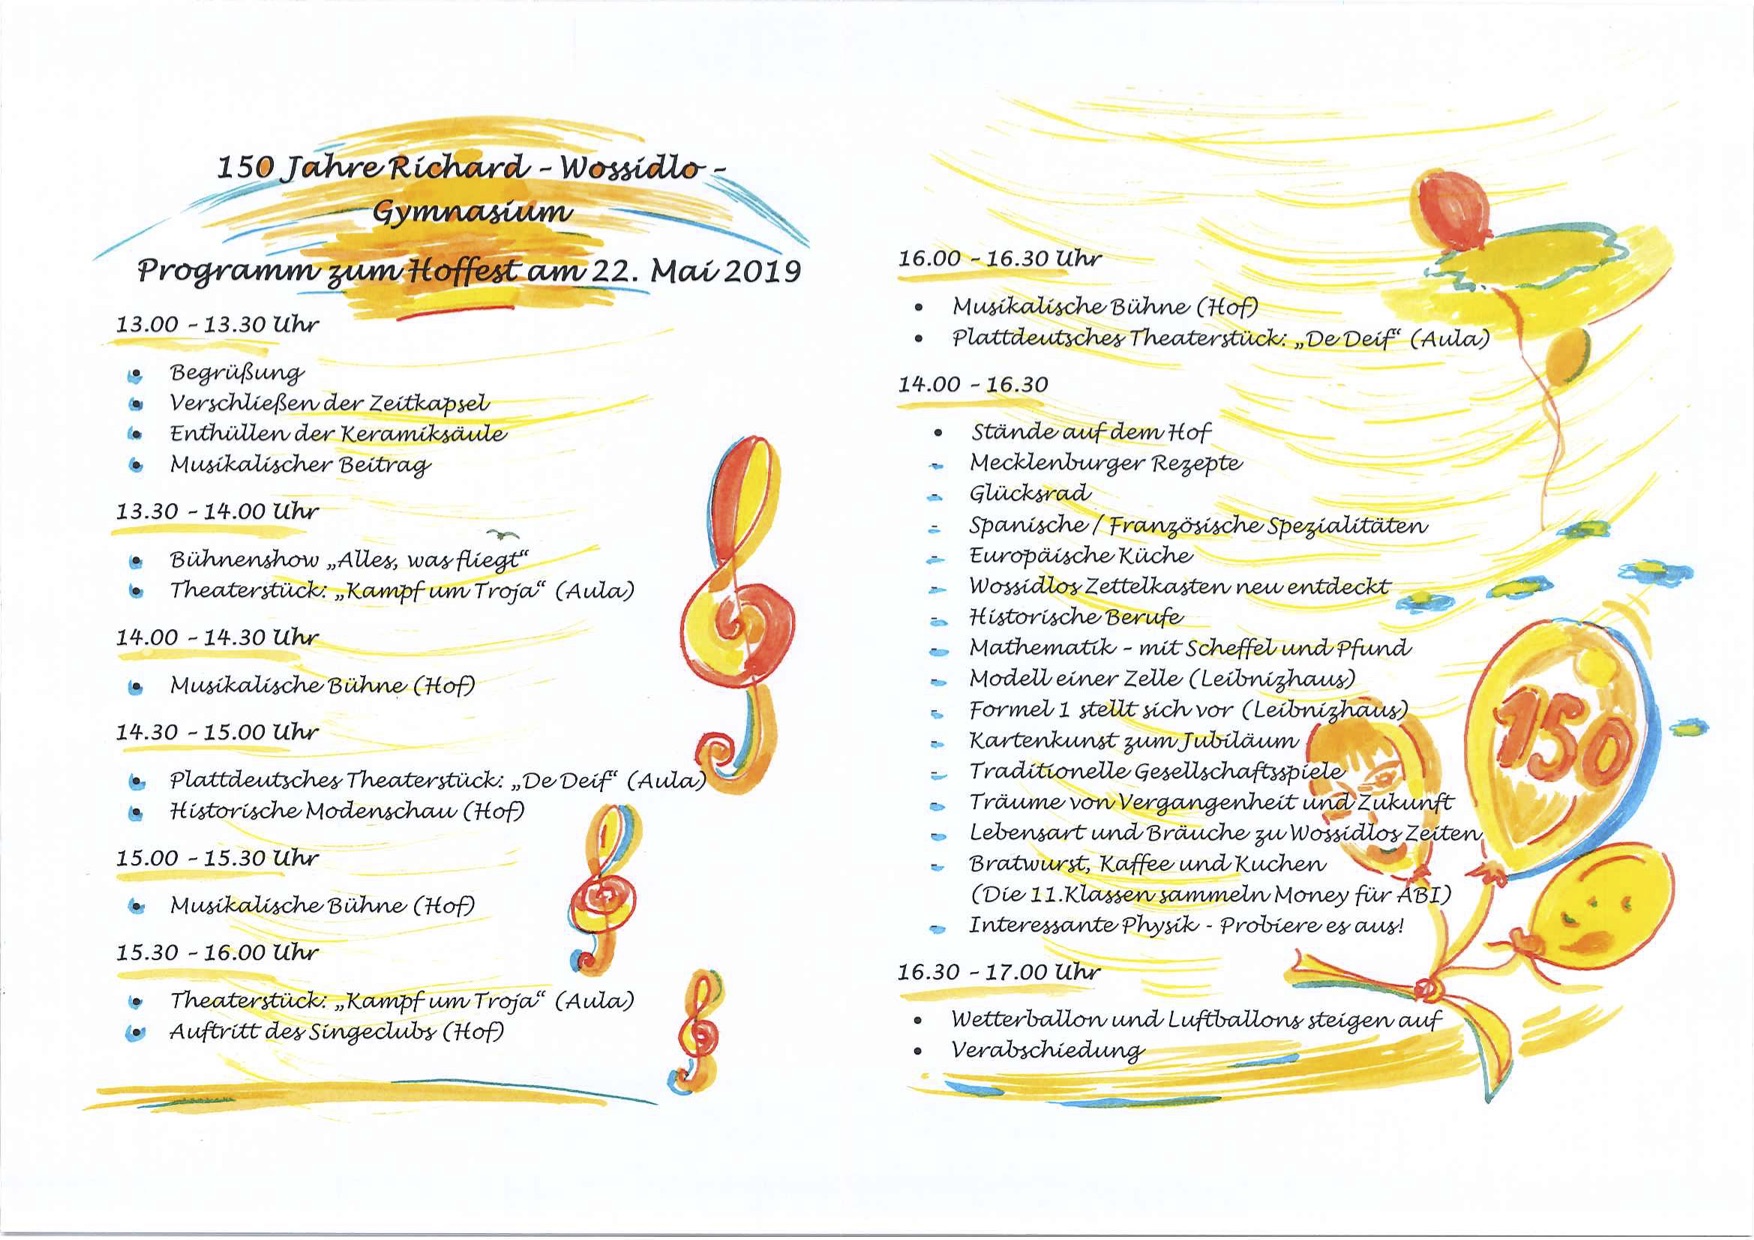 150 Jahre Richard - Wossidlo -
Gymnasium
Programm zum Hoffest am 22. Mai 2019
13.00 - 13.30 Uhr
• Begrüßung
• Verschließen der Zeitkapsel
• Enthüllen der Keramiksäule
• Musikalischer Beitrag
13.30 - 14.00 Uhr
• Bühnenshow „Alles, was fliegt“
• Theaterstück: „Kampf um Troja“ (Aula)
14.00 - 14.30 Uhr
• Musikalische Bühne (Hof)
14.30 - 15.00 Uhr
• Plattdeutsches Theaterstück: „De Deif“ (Aula)
• Historische Modenschau (Hof)
15.00 - 15.30 Uhr
• Musikalische Bühne (Hof)
15.30 - 16.00 Uhr
• Theaterstück: „Kampf um Troja“ (Aula)
• Auftritt des Singeclubs (Hof)
16.00 - 16.30 Uhr
• Musikalische Bühne (Hof)
• Plattdeutsches Theaterstück: „De Deif“ (Aula)
14.00 - 16.30
• Stände auf dem Hof
- Mecklenburger Rezepte
- Glücksrad
- Spanische / Französische Spezialitäten
- Europäische Küche
- Wossidlos Zettelkasten neu entdeckt
- Historische Berufe
- Mathematik - mit Scheffel und Pfund
- Modell einer Zelle (Leibnizhaus)
- Formel 1 stellt sich vor (Leibnizhaus)
- Kartenkunst zum Jubiläum
- Traditionelle Gesellschaftsspiele
- Träume von Vergangenheit und Zukunft
- Lebensart und Bräuche zu Wossidlos Zeiten
- Bratwurst, Kaffee und Kuchen
(Die 11.Klassen sammeln Money für ABI)
- Interessante Physik - Probiere es aus!
16.30 - 17.00 Uhr
• Wetterballon und Luftballons steigen auf
• Verabschiedung
150